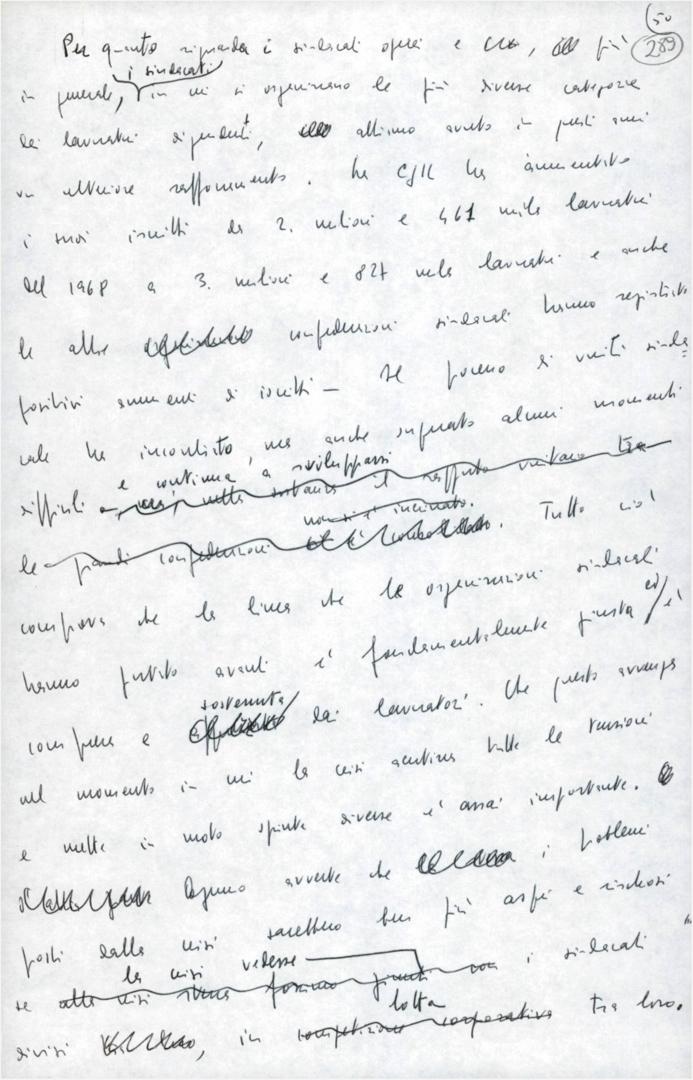 50
289
Per quanto riguarda i sindacati operai e più
i sindacati
in generale, in cui si organizzano le più diverse categorie
dei lavoratori dipendenti, abbiamo avuto in questi anni
un ulteriore rafforzamento. La CGIL ha aumentato
i suoi iscritti da 2. milioni e 461 mila lavoratori
del 1968 a 3. milioni e 827 mila lavoratori e anche
le altre confederazioni sindacali hanno registrato
positivi aumenti di iscritti - Il processo di unità sinda
cale ha incontrato, ma anche superato alcuni momenti
e continua a svilupparsi
difficili il rapporto unitario tra
non si è incrinato.
le grandi confederazioni . Tutto ciò
comprova che la linea che le organizzazioni sindacali
hanno portato avanti è fondamentalmente giusta ed è
sostenuta
compresa e dai lavoratori. Che questo avvenga
nel momento in cui la crisi acutizza tutte le tensioni
e mette in moto spinte diverse è assai importante.
Ognuno avverte che i problemi
posti dalla crisi sarebbero ben più aspri e rischiosi
la crisi vedesse
se alla crisi fossimo giunti con i sindacati
lotta
divisi , in competizione corporativa tra loro.